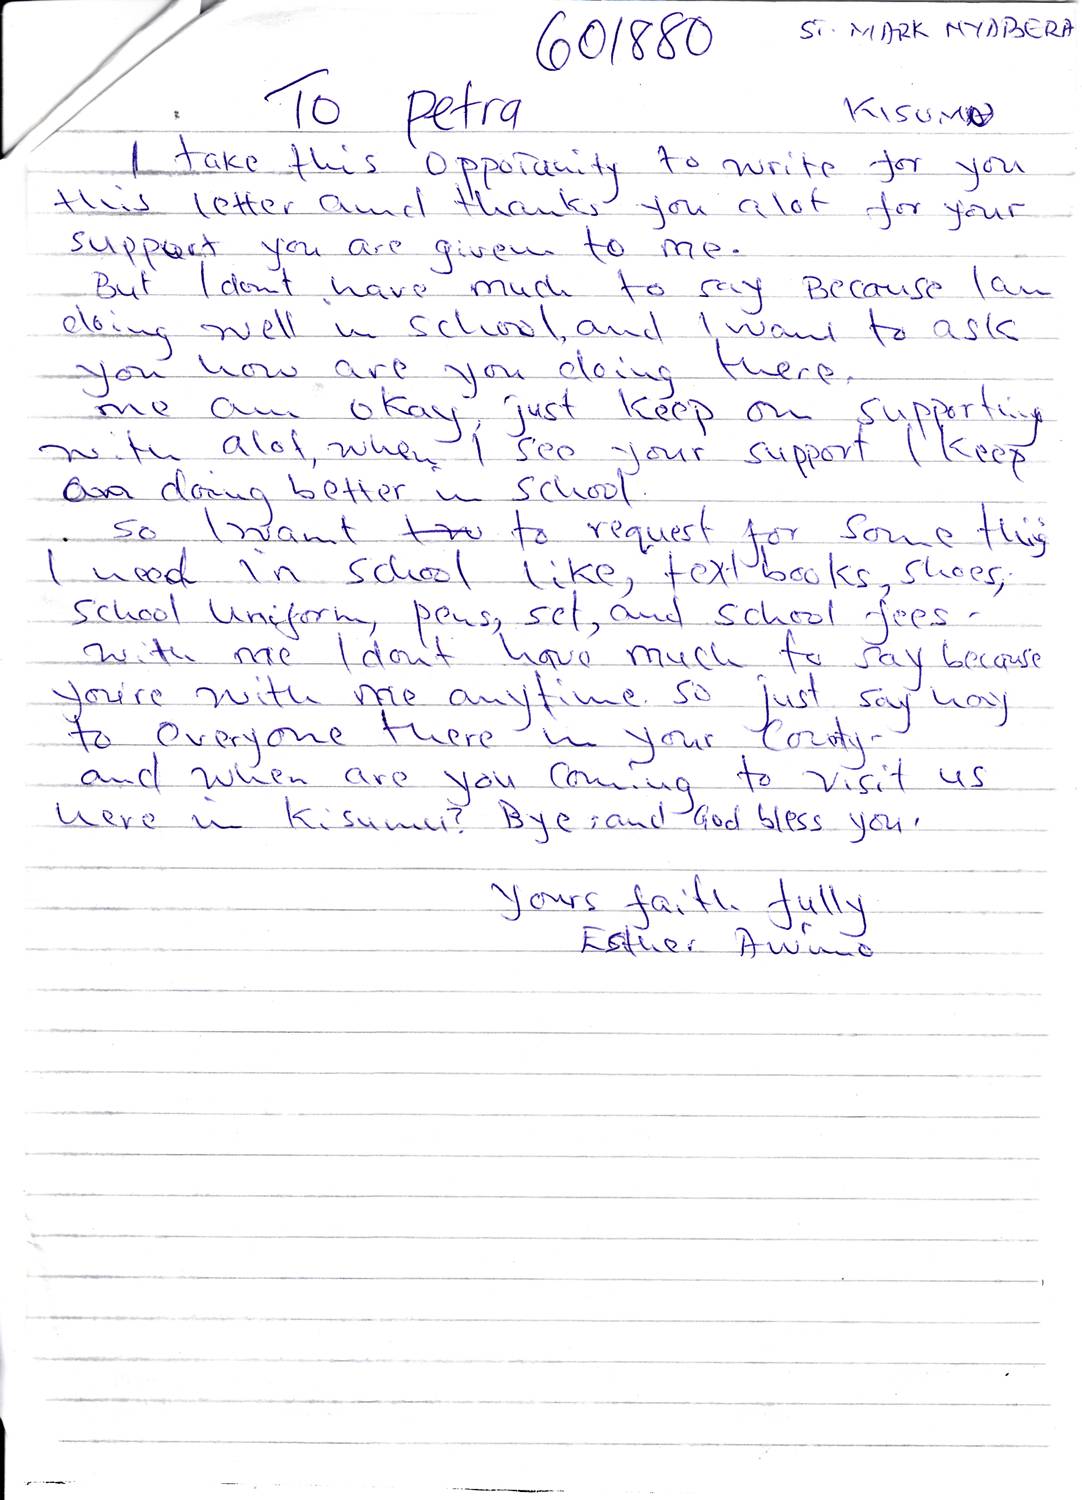 601880
ST. MARK NYABERA
To petra
KISUMU
I take this Opportunity to write for you
this letter amd thanks you alot for your
support you are givem to me.
But I dont have much to say Because I am
doing well in school, and I want to ask
you how are you doing there.
me am okay, just keep on supporting
with alot, when I see your support I keep
doing better in school.
so I want to request for some thing
I need in school like, text books, shoes,
school Uniform, pens, set, and school fees.
with me I dont have much to say because
you're with me anytime. so just say hay
to everyone there in your County.
and when are you coming to visit us
here in Kisumu? Bye and God bless you.
Yours faith fully
Esther Awino